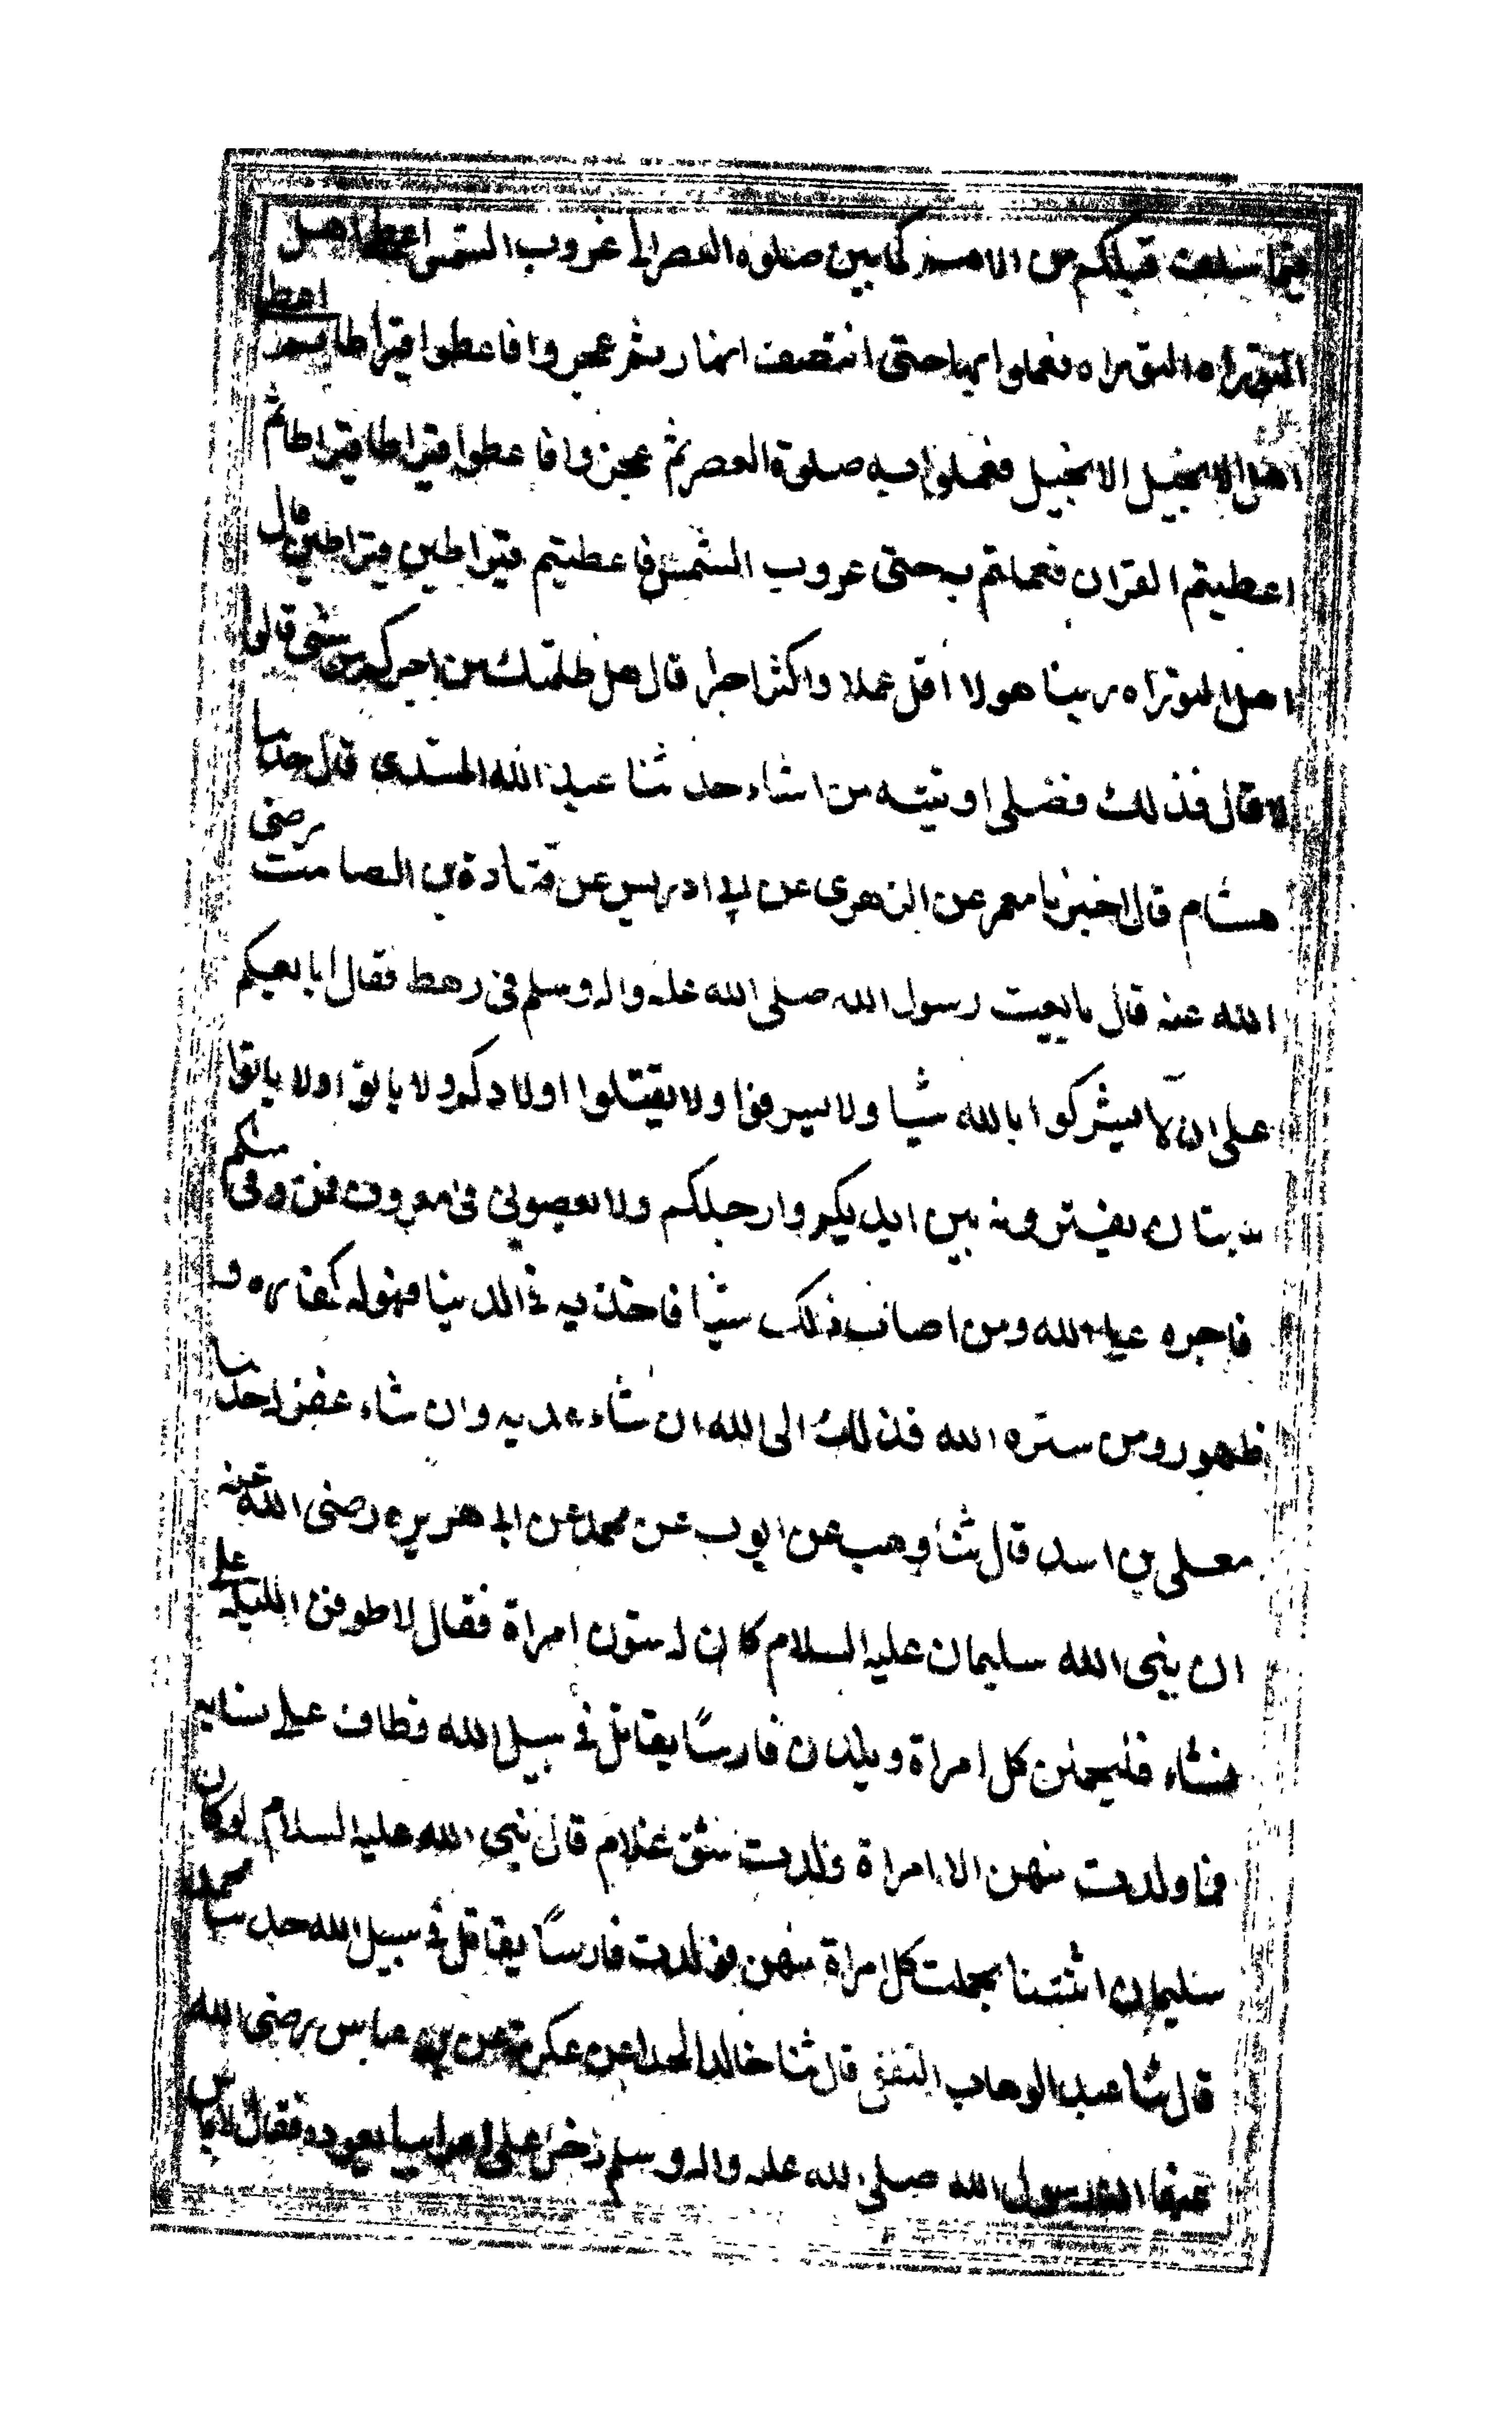 فيما سلف قبلكم من الامم كما بين صلوه العصر الى غروب الشمس اعطا اهل
التوراه التوراه فعملوا بها حتى انتصف النهار ثم عجزوا فاعطوا قيراطا ثم اعطى
اهل الانجيل الانجيل فعملوا به صلوة العصر ثم عجزوا فاعطوا قيراطا قيراطا ثم
اعطيتم القران فعملتم به حتى غروب الشمس فاعطيتم قيراطين قيراطين قال
اهل التوراه ربنا هولا اقل عملا واكثر اجرا قال هل ظلمتك من اجركم من شى قالوا
لا قال فذلك فضلى اوتيته من اشاء حدثنا عبد الله المسندى قال حدثنا
هشام قال اخبرنا معمر عن الزهرى عن ابى ادريس عن قتادة بن الصامت رضى
الله عنه قال بايعت رسول الله صلى الله عليه واله وسلم فى رهط فقال ابايعكم
على ان لا يشركوا بالله شيا ولا يسرقوا ولا يقتلوا اولادكم ولا ياتوا ولا ياتوا
ببهتان يفترونه بين ايديكم وارجلكم ولا تعصونى فى معروف فمن وفى منكم
فاجره على الله ومن اصاب ذلك شيئا فاخذ به فى الدنيا فهو له كفاره و
ظهور ومن ستره الله فذلك الى الله ان شاء عذبه وان شاء غفر له حدثنا
معلى بن اسد قال ثنا وهب عن ايوب عن محمد عن ابى هريره رضى الله عنه
ان نبى الله سليمان عليه السلام كان له ستون امراة فقال لاطوفن الليلة على
نساء فليحملن كل امراة ويلدن فارسًا يقاتل فى سبيل الله فطاف على نسايه
فما ولدت منهن الا امراة ولدت شق غلام قال نبى الله عليه السلام لو كان
سليمان اشتنا بحملت كل امراة منهن فولدت فارسًا يقاتل فى سبيل الله حدثنا محمد
قال ثنا عبد الوهاب الثقفى قال ثنا خالد الحذا عن عكرمة عن بن عباس رضى الله
عنهما ان رسول الله صلى الله عليه واله وسلم دخل على اعرابيا يعوده فقال لا باس